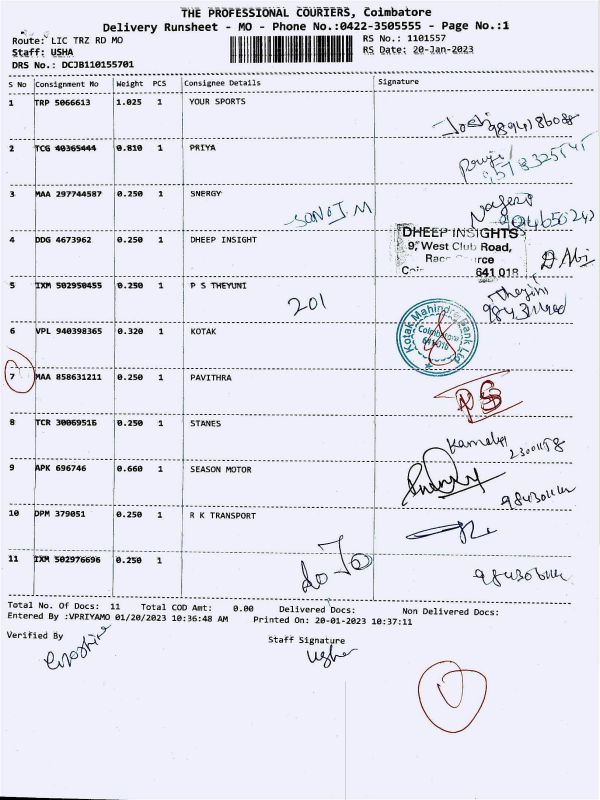 THE PROFESSIONAL COURIERS, Coimbatore
Delivery Runsheet - MO - Phone No.:0422-3505555 - Page No.:1
Route: LIC TRZ RD MO
RS No.: 1101557
Staff: USHA
RS Date: 20-Jan-2023
DRS No.: DCJB110155701
S No Consignment No Weight PCS Consignee Details Signature
1 TRP 5066613 1.025 1 YOUR SPORTS
2 TCG 40365444 0.810 1 PRIYA
3 MAA 297744587 0.250 1 SNERGY
SANOJ.M
4 DDG 4673962 0.250 1 DHEEP INSIGHT
DHEEP INSIGHTS
9, West Club Road,
641 018
D Abi
5 IXM 502950455 0.250 1 P S THEYUNI
201
6 VPL 940398365 0.320 1 KOTAK
Kotak Mahindra Bank Ltd
Coimbatore
641 018
7 MAA 858631211 0.250 1 PAVITHRA
8 TCR 30069516 0.250 1 STANES
9 APK 696746 0.660 1 SEASON MOTOR
10 DPM 379051 0.250 1 R K TRANSPORT
11 IXM 502976696 0.250 1
Total No. Of Docs: 11 Total COD Amt: 0.00 Delivered Docs: Non Delivered Docs:
Entered By :VPRIYAMO 01/20/2023 10:36:48 AM Printed On: 20-01-2023 10:37:11
Verified By
Staff Signature
Usha